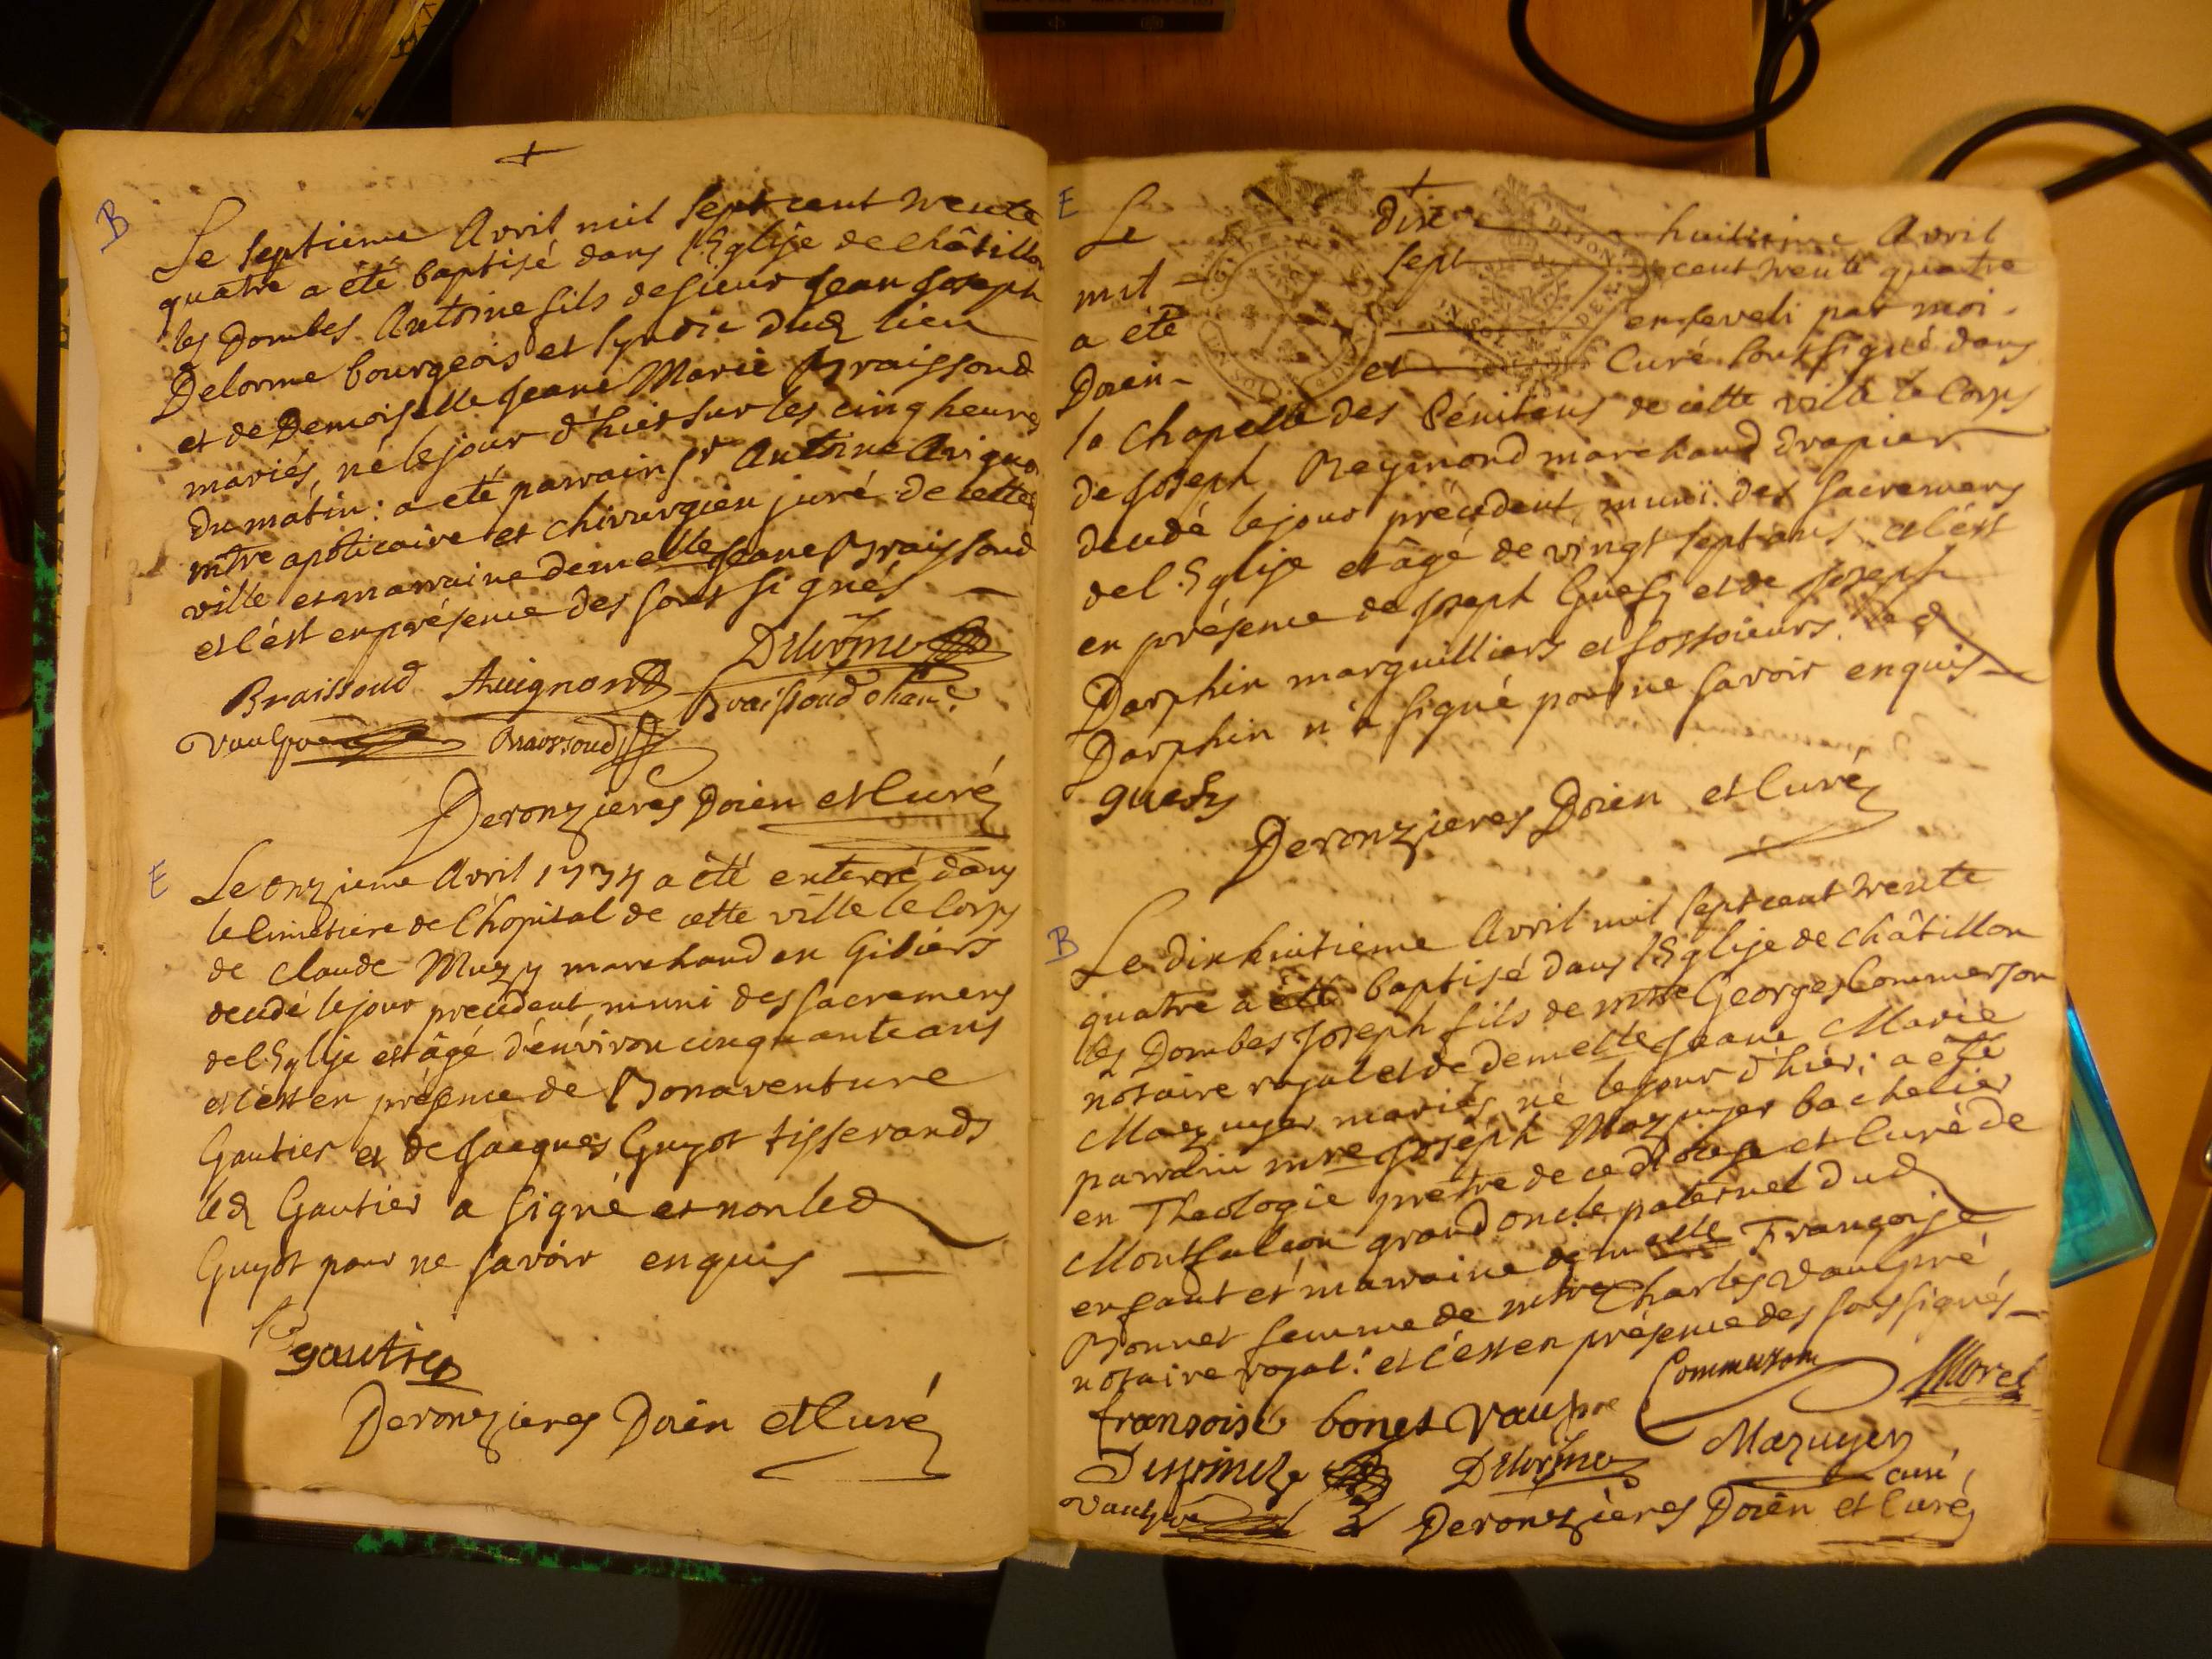 B
Le septieme Avril mil sept cent trente
quatre a été baptisé dans l'Eglise de châtillon
les Dombes Antoine fils de sieur Jean Joseph
Delorme bourgeois et syndic dud lieu
et de Demoiselle Jeane Marie Braissoud
mariés, né le jour d'hier sur les cinq heures
du matin: a eté parrain sr Antoine Avignon
mtre apoticaire et chirurgien juré de cette
ville et marraine demelle Jeane Braissoud
et c'est en présence des sous signés
Delorme
Braissoud Avignon Braissoud
Vaulpré Braissoud
Deronzieres Doien et Curé
E
Le onzieme Avril 1734 a été enterré dans
le Cimetiere de l'hopital de cette ville le Corps
de Claude Muzy marchand en Gibiers
decedé le jour precedent, muni des sacremens
de l'Eglise et âgé d'environ cinquante ans
et c'est en présence de Bonaventure
Gautier et de Jacques Guyot tisserands
led Gautier a signé et non led
Guyot pour ne savoir enquis
B gautier
Deronzieres Doien et Curé
E
Le dix huitieme Avril
mil sept cent trente quatre
a été enseveli par moi
Doien et Curé soussigné dans
la chapelle des Pénitens de cette ville le Corps
de Joseph Reymond marchand drapier
decedé le jour précédent, muni des sacremens
de l'Eglise et âgé de vingt sept ans, et c'est
en présence de Joseph Guesy et de Joseph
Darphin marguilliers et fossoieurs. led
Darphin n'a signé pour ne savoir enquis
guesy
Deronzieres Doien et Curé
B
Le dixhuitieme Avril mil sept cent trente
quatre a été baptisé dans l'Eglise de châtillon
les Dombes Joseph fils de mtre Georges Commerson
notaire royal et de demelle Jeane Marie
Mazuyer mariés, né le jour d'hier; a été
parrain mre Joseph Mazuyer bachelier
en Theologie prêtre de ce diocese et Curé de
Montfalcon grand oncle paternel dud
enfant et marraine demelle Françoise
Bonnet femme de mtre Charles Vaulpré
notaire royal: et c'est en présence des sous signés
Commerson Morel
fransoise bonet Vaulpre
Delorme Mazuyer
curé
Vaulpré Deronzières Doien et Curé